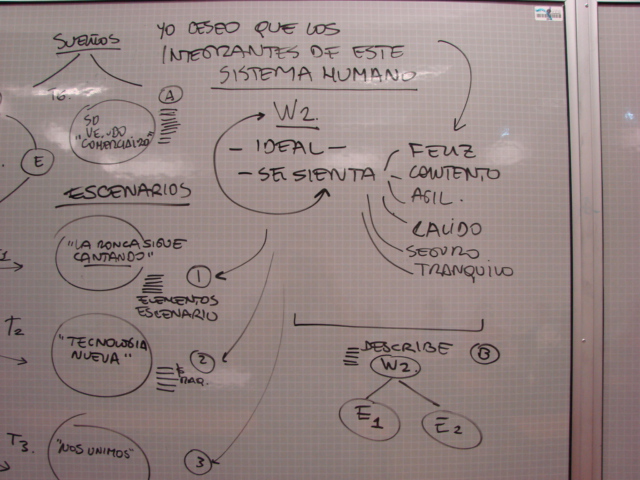 SUEÑOS
YO DESEO QUE LOS
INTEGRANTES DE ESTE
SISTEMA HUMANO
A
W2.
- IDEAL -
- SE SIENTA
FELIZ
CONTENTO
AGIL.
CALIDO
SEGURO
TRANQUILO
E
ESCENARIOS
"LA RONCA SIGUE
CANTANDO"
1
ELEMENTOS
ESCENARIO
T2
"TECNOLOGIA
NUEVA"
2
DESCRIBE
B
W2.
E1
E2
T3.
"NOS UNIMOS"
3